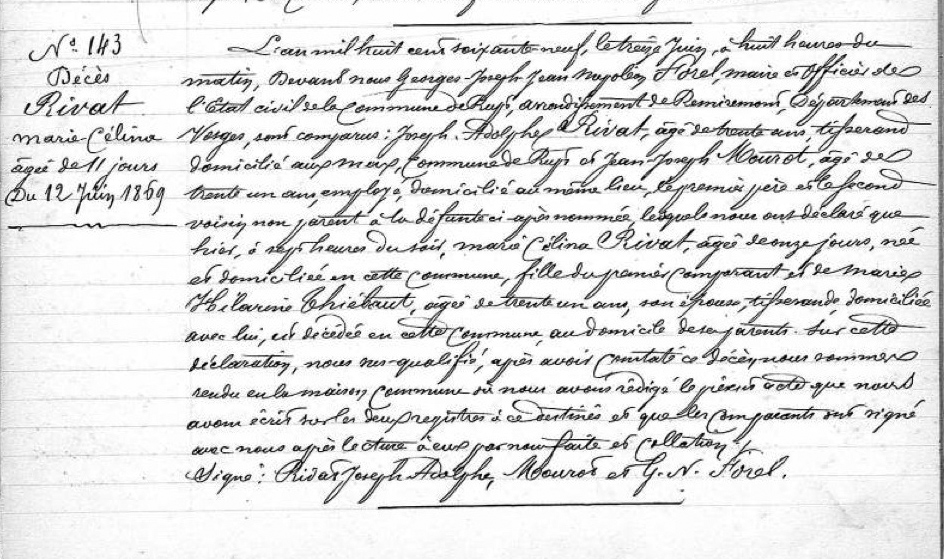 N° 143
Décès
Rivat
marie Célina
âgée de 11 jours
Du 12 Juin 1869
L'an mil huit cent soixante neuf, le treize Juin, à huit heures du
matin, Devant nous Georges-Joseph Jean Napoléon Forel, maire et officier de
l'Etat civil de la Commune de Rupt, arrondissement de Remiremont, Département des
Vosges, sont comparus : Joseph-Adolphe Rivat, âgé de trente ans, tisserand
domicilié aux meix, Commune de Rupt et Jean-Joseph Mourot, âgé de
trente un ans, employé, domicilié au même lieu, le premier père et le second
voisin non parent à la défunte ci-après nommée, lesquels nous ont déclaré que
hier, à sept heures du soir, marie Célina Rivat, âgée de onze jours, née
et domiciliée en cette Commune, fille du premier comparant et de marie
Hilarine Thiébaut, âgée de trente un ans, son épouse, tisserande, domiciliée
avec lui, est décédée en cette Commune, au domicile de ses parents. Sur cette
déclaration, nous sus-qualifié, après avoir constaté ce décès, nous sommes
rendu en la maison Commune où nous avons rédigé le présent acte que nous
avons écrit sur les deux registres à ce destinés et que les comparants ont signé
avec nous après lecture à eux par nous faite et collation.
Signé : Rivat Joseph Adolphe, Mourot et G. N. Forel.